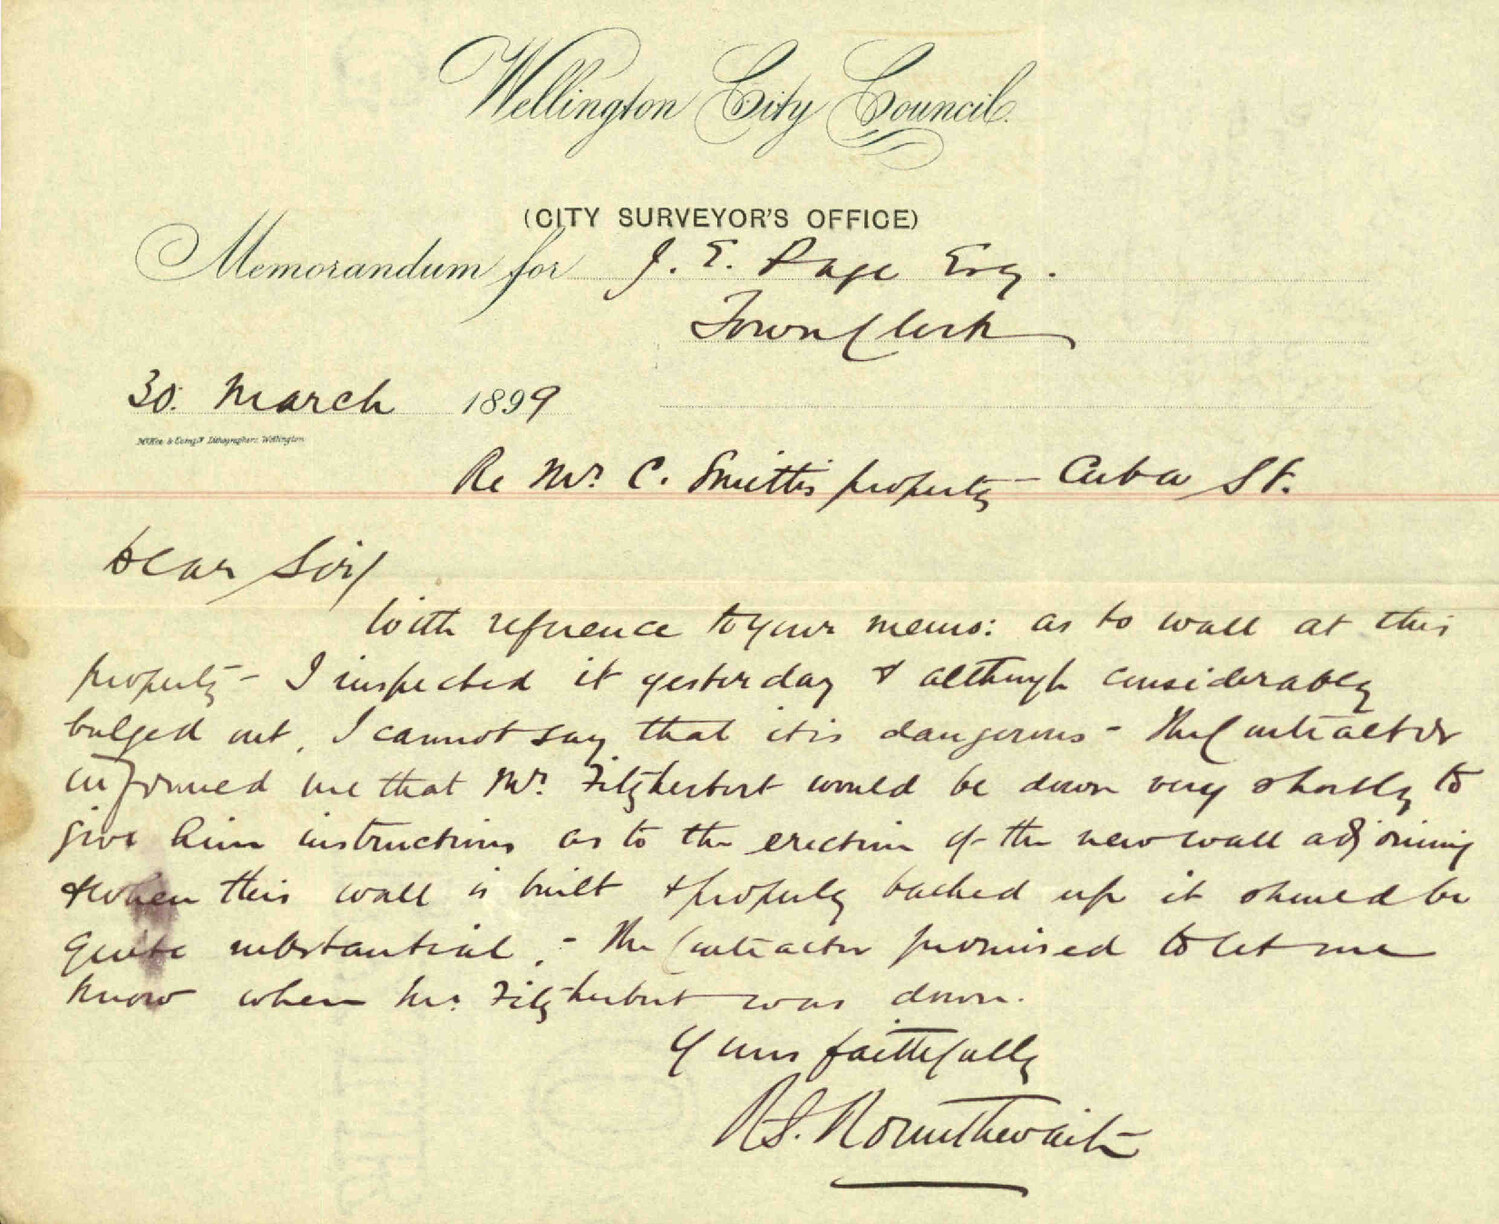 Wellington City Council.
(CITY SURVEYOR'S OFFICE)
Memorandum for J. E. Page Esq.
Town Clerk
30. March 1899
McKee & Comp.y Lithographers Wellington
Re Mr. C. Smith's property - Cuba St.
Dear Sir/
With reference to your memo: as to wall at this
property - I inspected it yesterday & although considerably
bulged out, I cannot say that it is dangerous - The Contractor
informed me that Mr. Fitzherbert would be down very shortly to
give him instructions as to the erection of the new wall adjoining
& when this wall is built & properly backed up it should be
quite substantial. - The Contractor promised to let me
know when Mr. Fitzherbert was down.
Yours faithfully
R.S. Rounthwaite